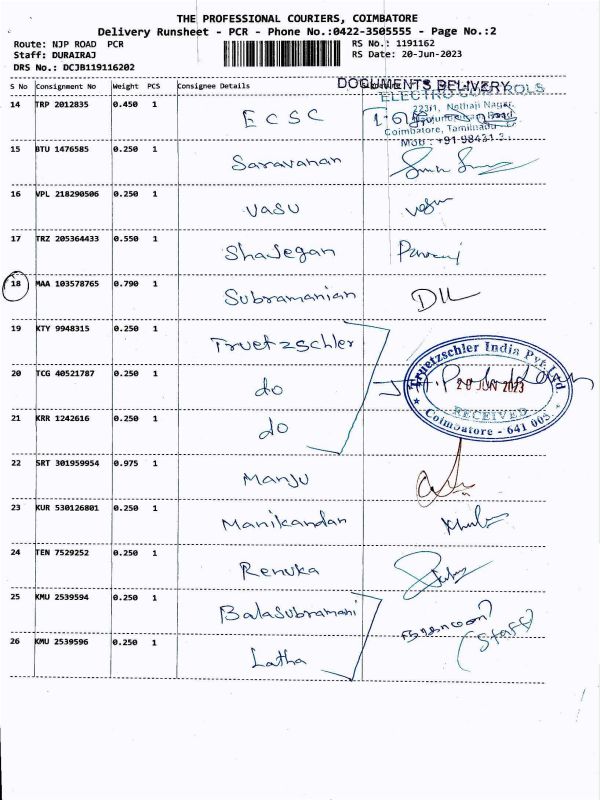 THE PROFESSIONAL COURIERS, COIMBATORE
Delivery Runsheet - PCR - Phone No.:0422-3505555 - Page No.:2
Route: NJP ROAD PCR RS No.: 1191162
Staff: DURAIRAJ RS Date: 20-Jun-2023
DRS No.: DCJB119116202
S No Consignment No Weight PCS Consignee Details DOCUMENTS DELIVERY
ELECTRO CONTROLS
14 TRP 2012835 0.450 1 ECSC
223/1, Nethaji Nagar,
Coimbatore, Tamilnadu
Mob : +91-98431-3
15 BTU 1476585 0.250 1 Saravanan
16 VPL 218290506 0.250 1 Vasu
17 TRZ 205364433 0.550 1 Shavegan
18 MAA 103578765 0.790 1 Subramanian
19 KTY 9948315 0.250 1 Truetzschler
Truetzschler India Pvt. Ltd.
20 TCG 40521787 0.250 1 do
20 JUN 2023
RECEIVED
Coimbatore - 641 005
21 KRR 1242616 0.250 1 do
22 SRT 301959954 0.975 1 Manju
23 KUR 530126801 0.250 1 Manikandan
24 TEN 7529252 0.250 1 Renuka
25 KMU 2539594 0.250 1 Balasubramani
(Staff)
26 KMU 2539596 0.250 1 Latha